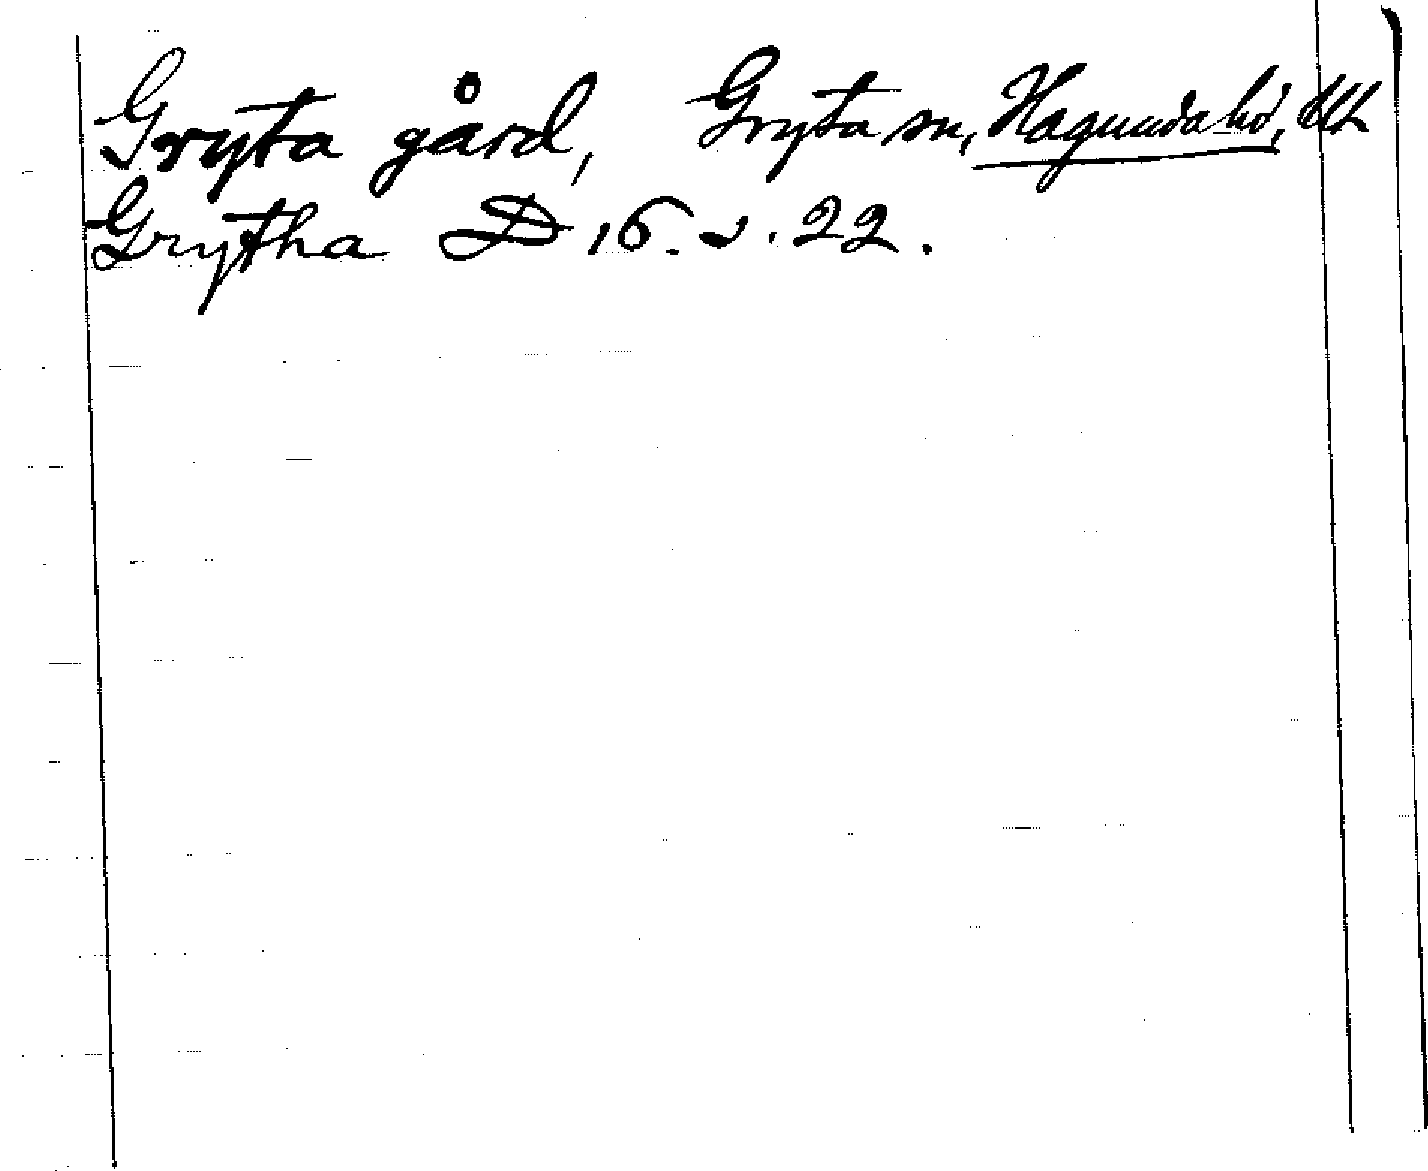 Gryta gård, Gryta sn, Hagunda hd, Ull
Grytha D 16. s. 22.